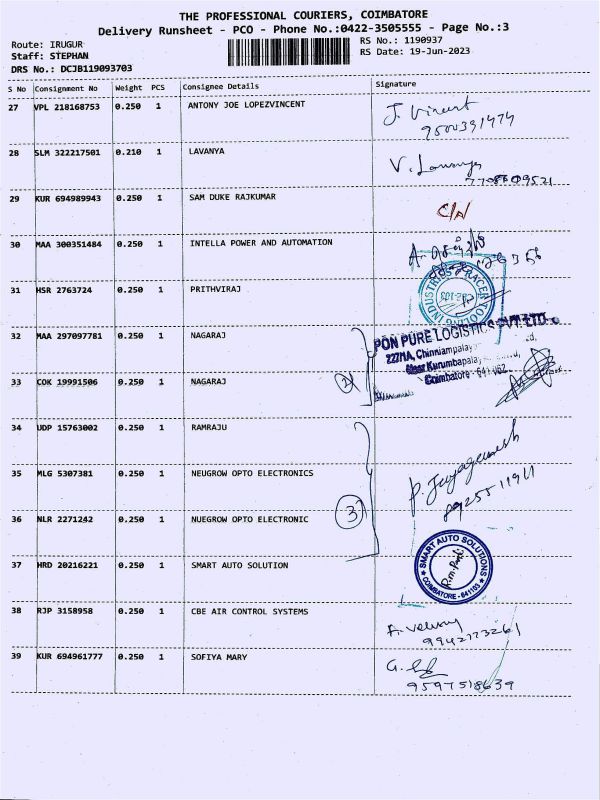 THE PROFESSIONAL COURIERS, COIMBATORE
Delivery Runsheet - PCO - Phone No.:0422-3505555 - Page No.:3
Route: IRUGUR
RS No.: 1190937
Staff: STEPHAN
RS Date: 19-Jun-2023
DRS No.: DCJB119093703
S No Consignment No Weight PCS Consignee Details Signature
27 VPL 218168753 0.250 1 ANTONY JOE LOPEZVINCENT
J. Vincent
28 SLM 322217501 0.210 1 LAVANYA
V. Lavanya
29 KUR 694989943 0.250 1 SAM DUKE RAJKUMAR
30 MAA 300351484 0.250 1 INTELLA POWER AND AUTOMATION
31 HSR 2763724 0.250 1 PRITHVIRAJ
INDUSTRIES
32 MAA 297097781 0.250 1 NAGARAJ
PON PURE LOGISTICS PVT LTD.
Chinniampalay
Near Kurumbapalay
Coimbatore - 641 062
33 COK 19991506 0.250 1 NAGARAJ
2
34 UDP 15763002 0.250 1 RAMRAJU
35 MLG 5307381 0.250 1 NEUGROW OPTO ELECTRONICS
36 NLR 2271242 0.250 1 NUEGROW OPTO ELECTRONIC
3
37 HRD 20216221 0.250 1 SMART AUTO SOLUTION
SMART AUTO SOLUTIONS
COIMBATORE - 641103
38 RJP 3158958 0.250 1 CBE AIR CONTROL SYSTEMS
39 KUR 694961777 0.250 1 SOFIYA MARY
9597518639